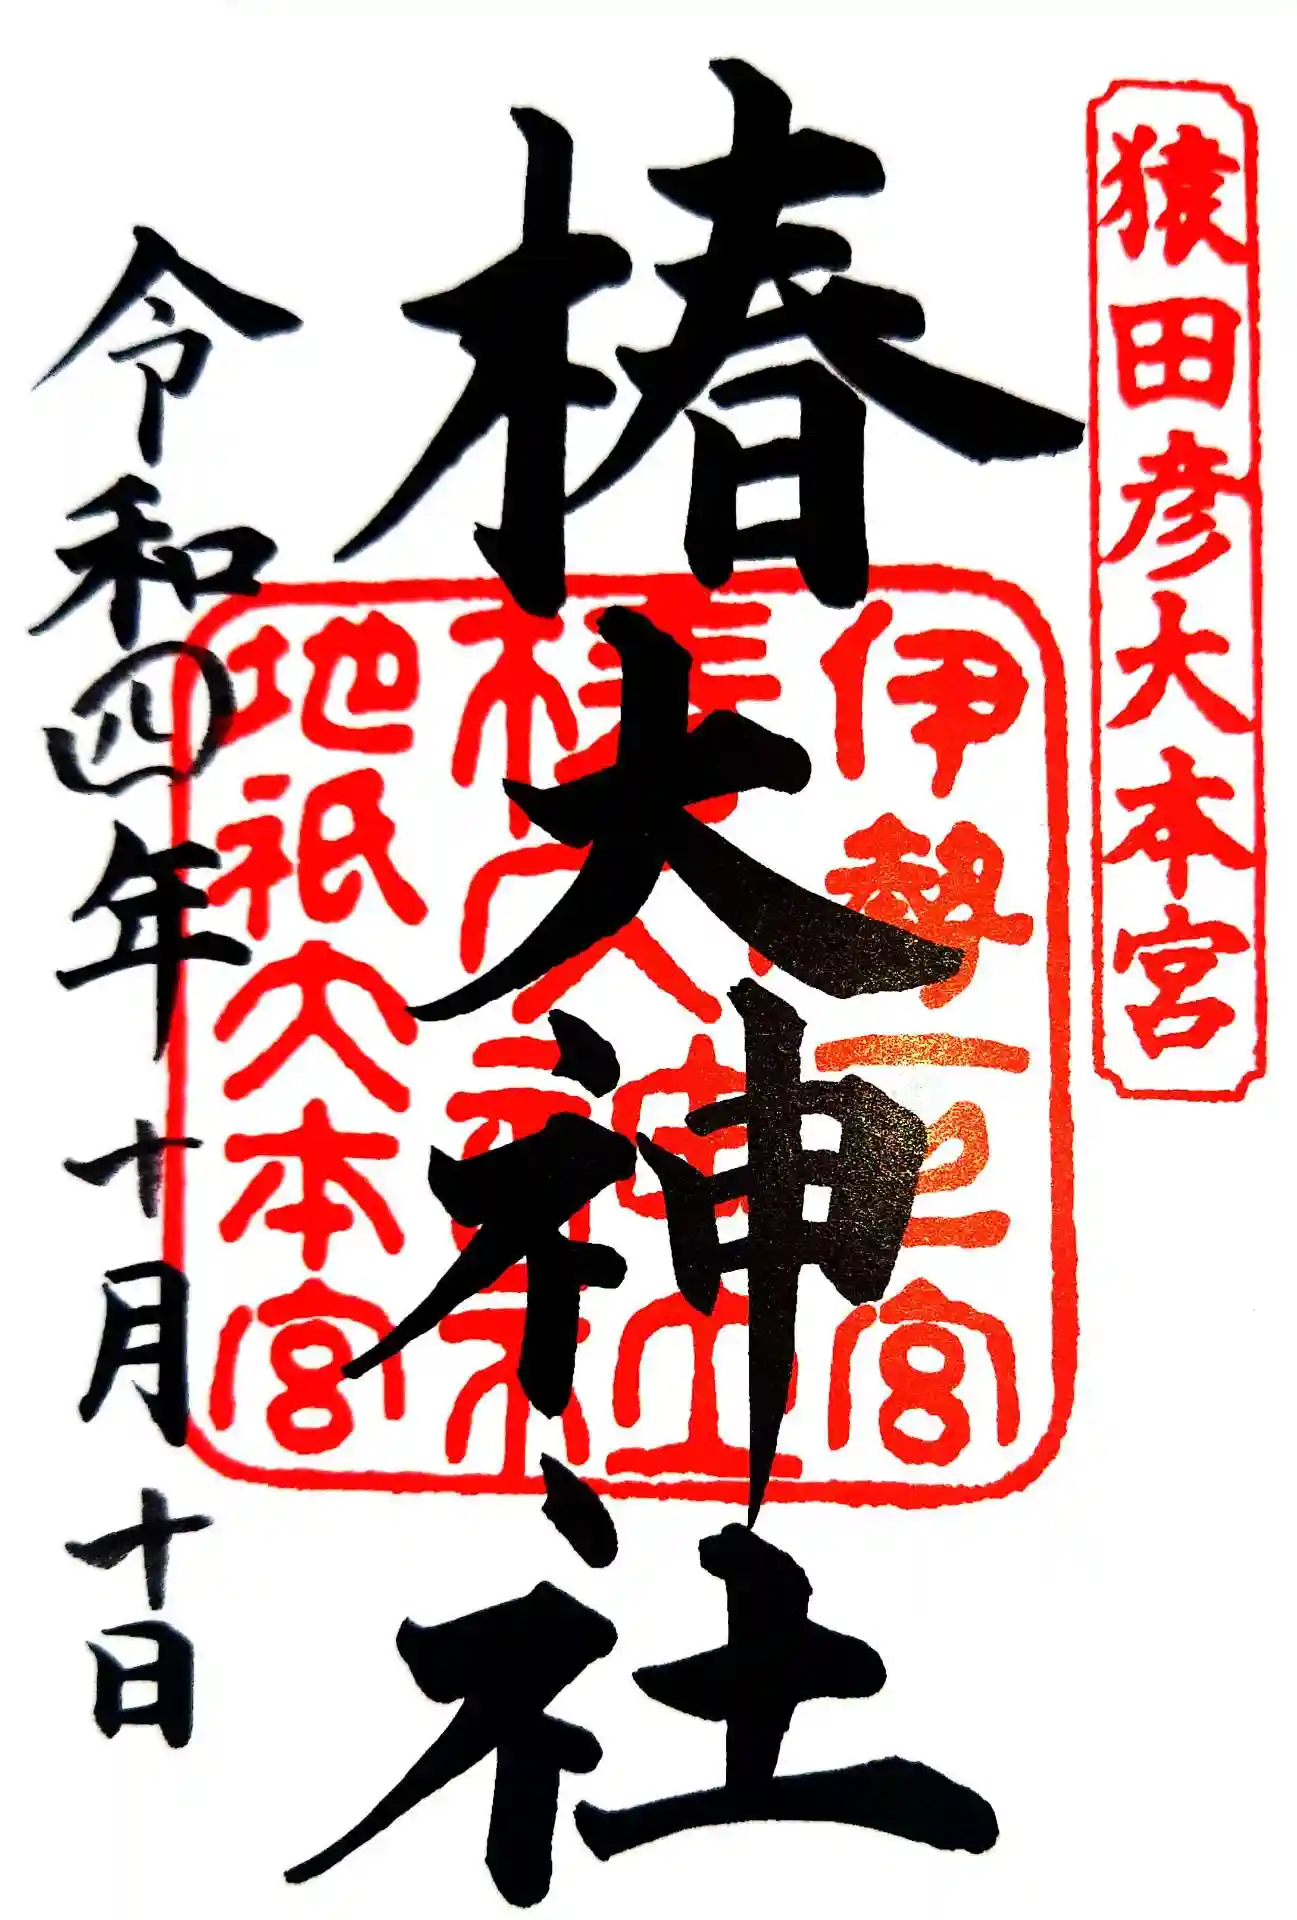 猿田彦大本宮
椿大神社
伊勢一之宮
椿大神社
地祇大本宮
令和四年十月十日